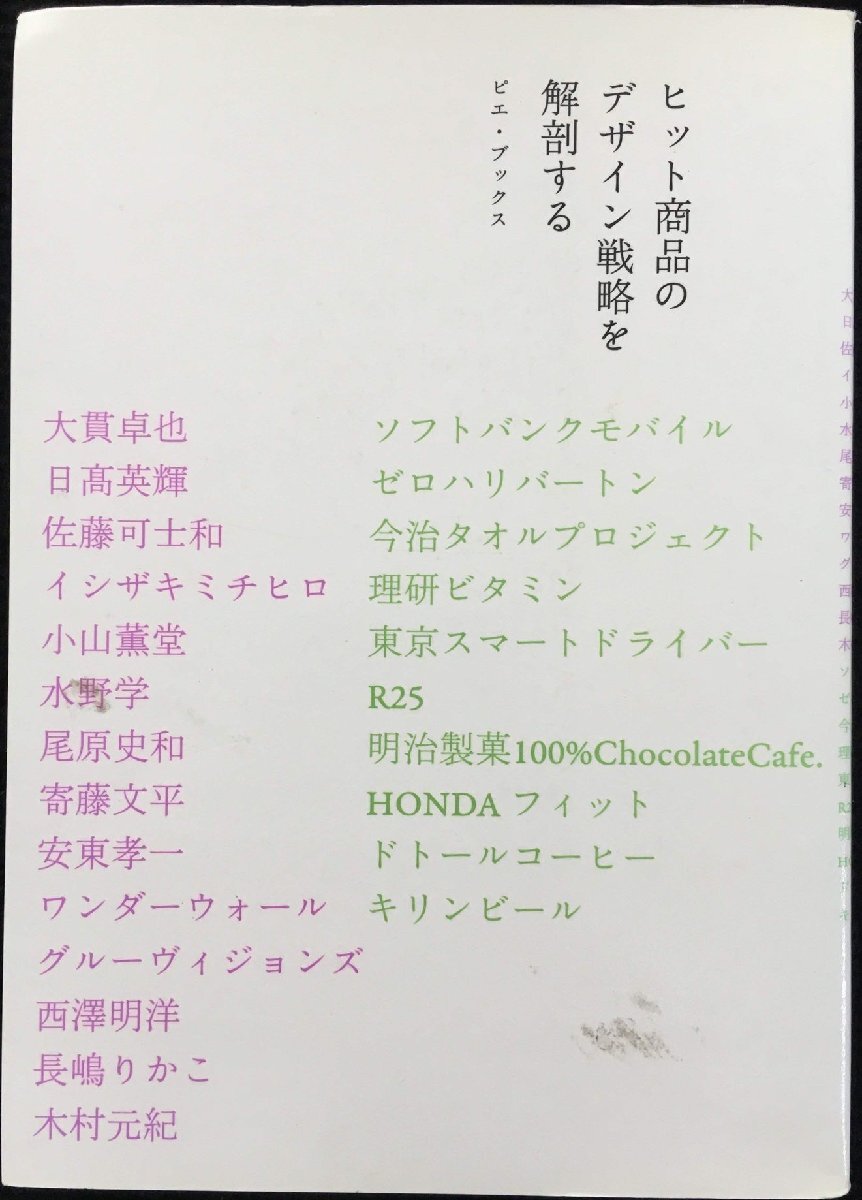 ヒット商品の
デザイン戦略を
解剖する
ピエ・ブックス
大貫卓也
日髙英輝
佐藤可士和
イシザキミチヒロ
小山薫堂
水野学
尾原史和
寄藤文平
安東孝一
ワンダーウォール
グルーヴィジョンズ
西澤明洋
長嶋りかこ
木村元紀
ソフトバンクモバイル
ゼロハリバートン
今治タオルプロジェクト
理研ビタミン
東京スマートドライバー
R25
明治製菓100%ChocolateCafe.
HONDA フィット
ドトールコーヒー
キリンビール
大
日
佐
イ
小
水
尾
寄
安
ワ
グ
西
長
木
ソ
ゼ
今
理
東
R2
明
HO
ド
キ